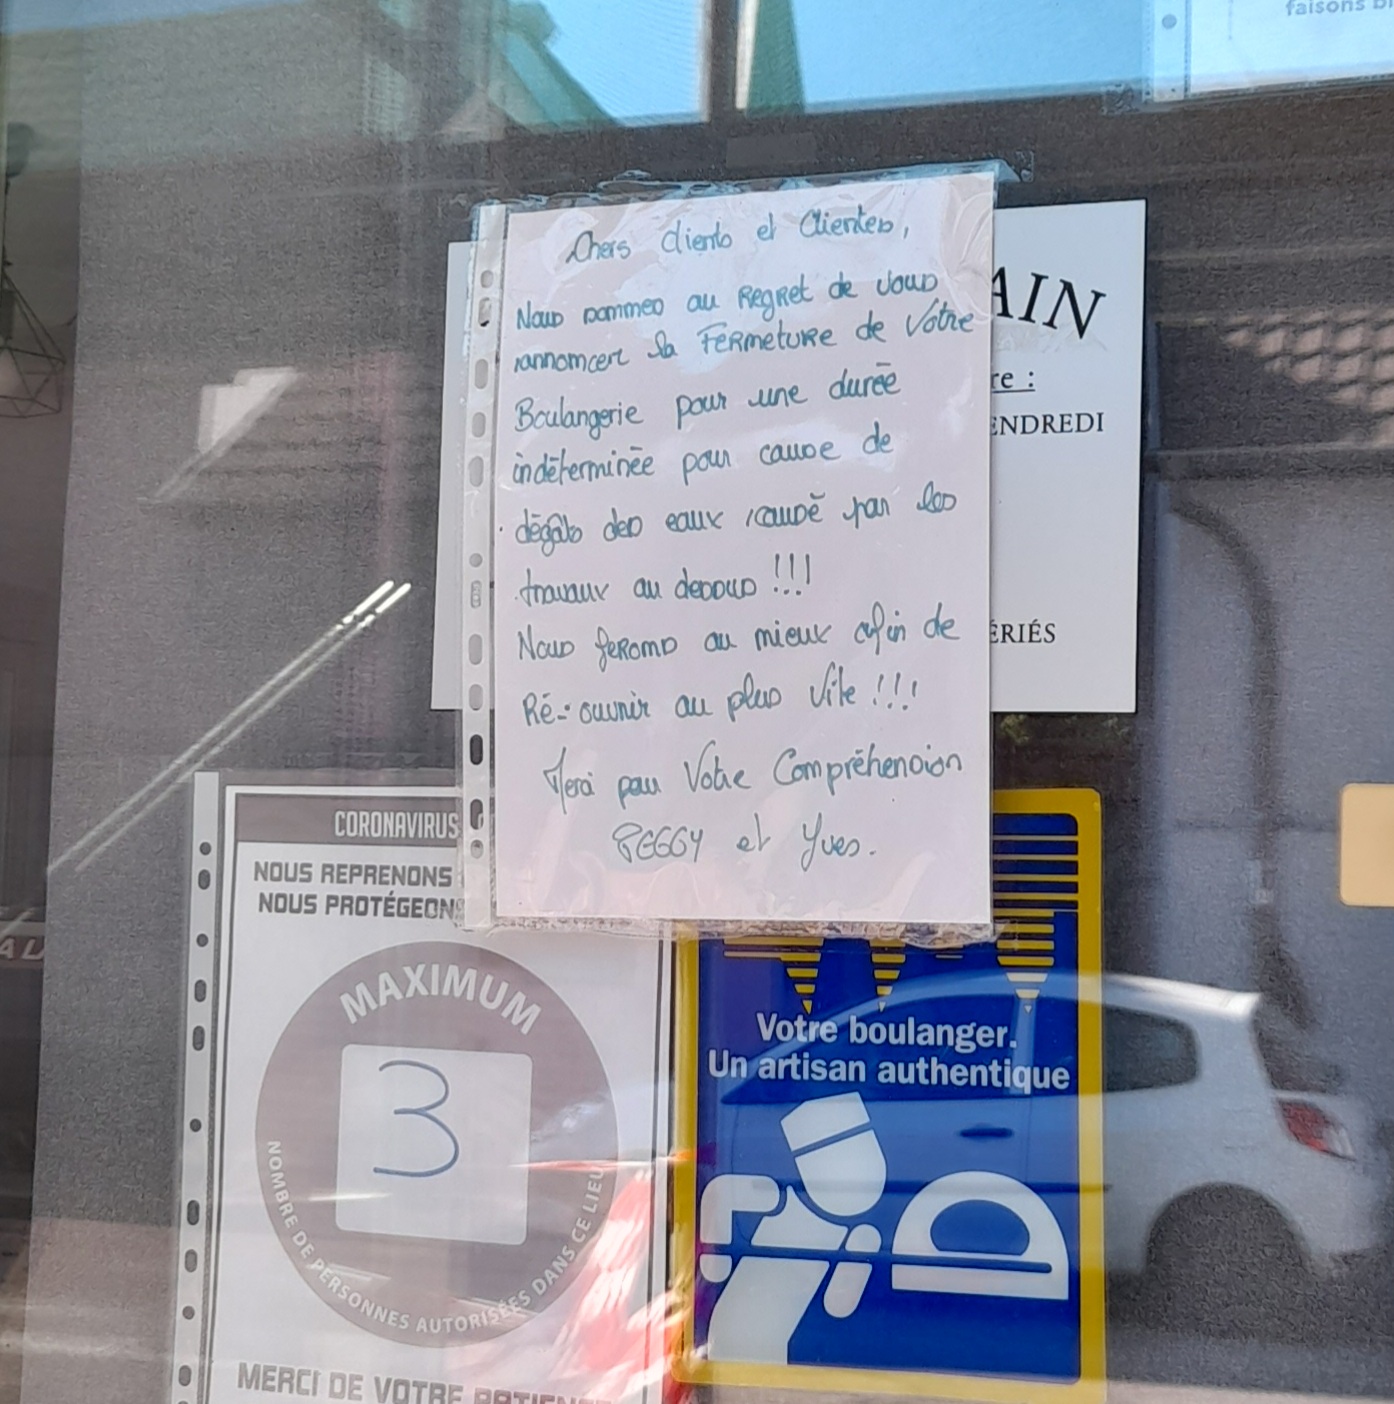 faisons bi
Chers clients et Clientes,
Nous sommes au Regret de vous
annoncer la Fermeture de Votre
Boulangerie pour une durée
indéterminée pour cause de
dégâts des eaux causé par les
travaux au dessus !!!
Nous feRons au mieux afin de
Ré-ouvrir au plus Vite !!!
Merci pour Votre Compréhension
PEGGY et Yves.
AIN
re :
ENDREDI
ÉRIÉS
CORONAVIRUS
NOUS REPRENONS
NOUS PROTÉGEONS
MAXIMUM
3
NOMBRE DE PERSONNES AUTORISÉES DANS CE LIEU
MERCI DE VOTRE PATIEN
Votre boulanger.
Un artisan authentique